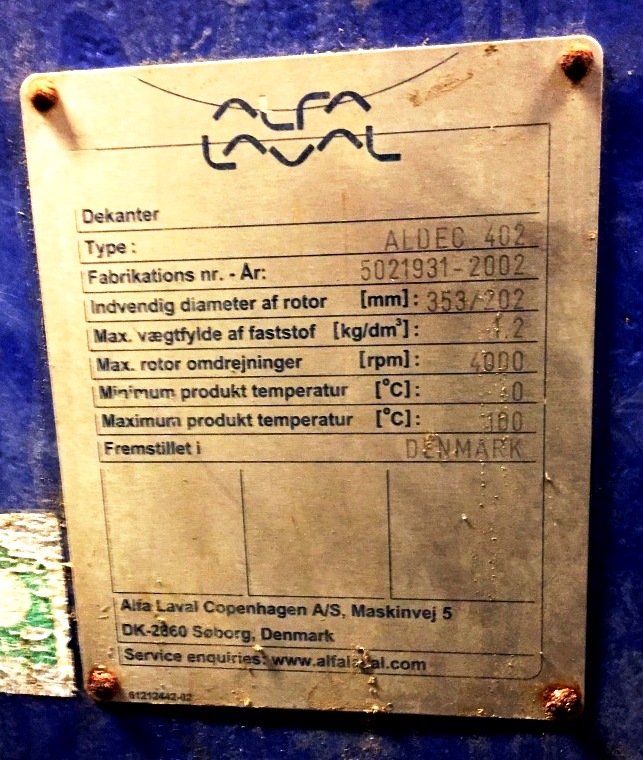 ALFA
LAVAL
Dekanter
Type: ALDEC 402
Fabrikations nr. - År: 5021931-2002
Indvendig diameter af rotor [mm]: 353/202
Max. vægtfylde af faststof [kg/dm³]: 1.2
Max. rotor omdrejninger [rpm]: 4000
Minimum produkt temperatur [°C]: 0
Maximum produkt temperatur [°C]: 100
Fremstillet i DENMARK
Alfa Laval Copenhagen A/S, Maskinvej 5
DK-2860 Søborg, Denmark
Service enquiries: www.alfalaval.com
61212442-02